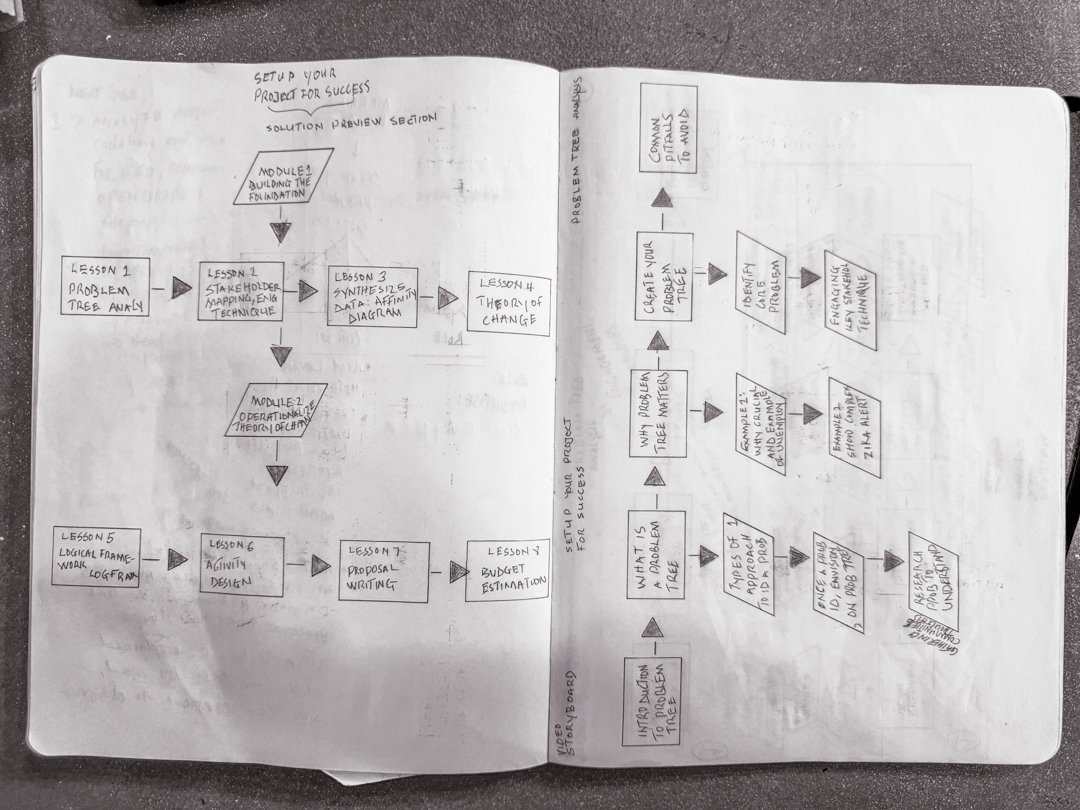 SETUP YOUR
PROJECT FOR SUCCESS
SOLUTION PREVIEW SECTION
MODULE 1
BUILDING THE
FOUNDATION
LESSON 1
PROBLEM
TREE ANALY
LESSON 2
STAKEHOLDER
MAPPING, ENG
TECHNIQUE
LESSON 3
SYNTHESIZE
DATA: AFFINITY
DIAGRAM
LESSON 4
THEORY OF
CHANGE
MODULE 2
OPERATIONALIZE
THEORY OF CHANGE
LESSON 5
LOGICAL FRAME-
WORK
LOGFRAM
LESSON 6
ACTIVITY
DESIGN
LESSON 7
PROPOSAL
WRITING
LESSON 8
BUDGET
ESTIMATION
VIDEO
STORYBOARD
SETUP YOUR PROJECT
FOR SUCCESS
PROBLEM TREE ANALYSIS
INTRODUCTION
TO PROBLEM
TREE
WHAT IS
A PROBLEM
TREE
TYPES OF
APPROACH
TO ID A PROB
ONCE A PROB
ID, ENVISION
ON PROB TREE
RESEARCH
PROB TO
UNDERSTAND
GATHERING
COMMUNITIES
WHY PROBLEM
TREE MATTERS
EXAMPLE 1:
WHY CRUCIAL
AND EXAMPLE
OF UNEMPLOY
EXAMPLE 2
SHOW COMPLEX
ZIKA ALERT
CREATE YOUR
PROBLEM
TREE
IDENTIFY
CORE
PROBLEM
ENGAGING
KEY STAKEHOL
TECHNIQUE
COMMON
PITFALLS
TO AVOID